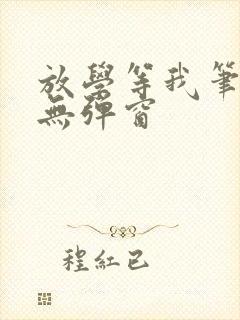 放學等我筆
無彈窗
程紅已